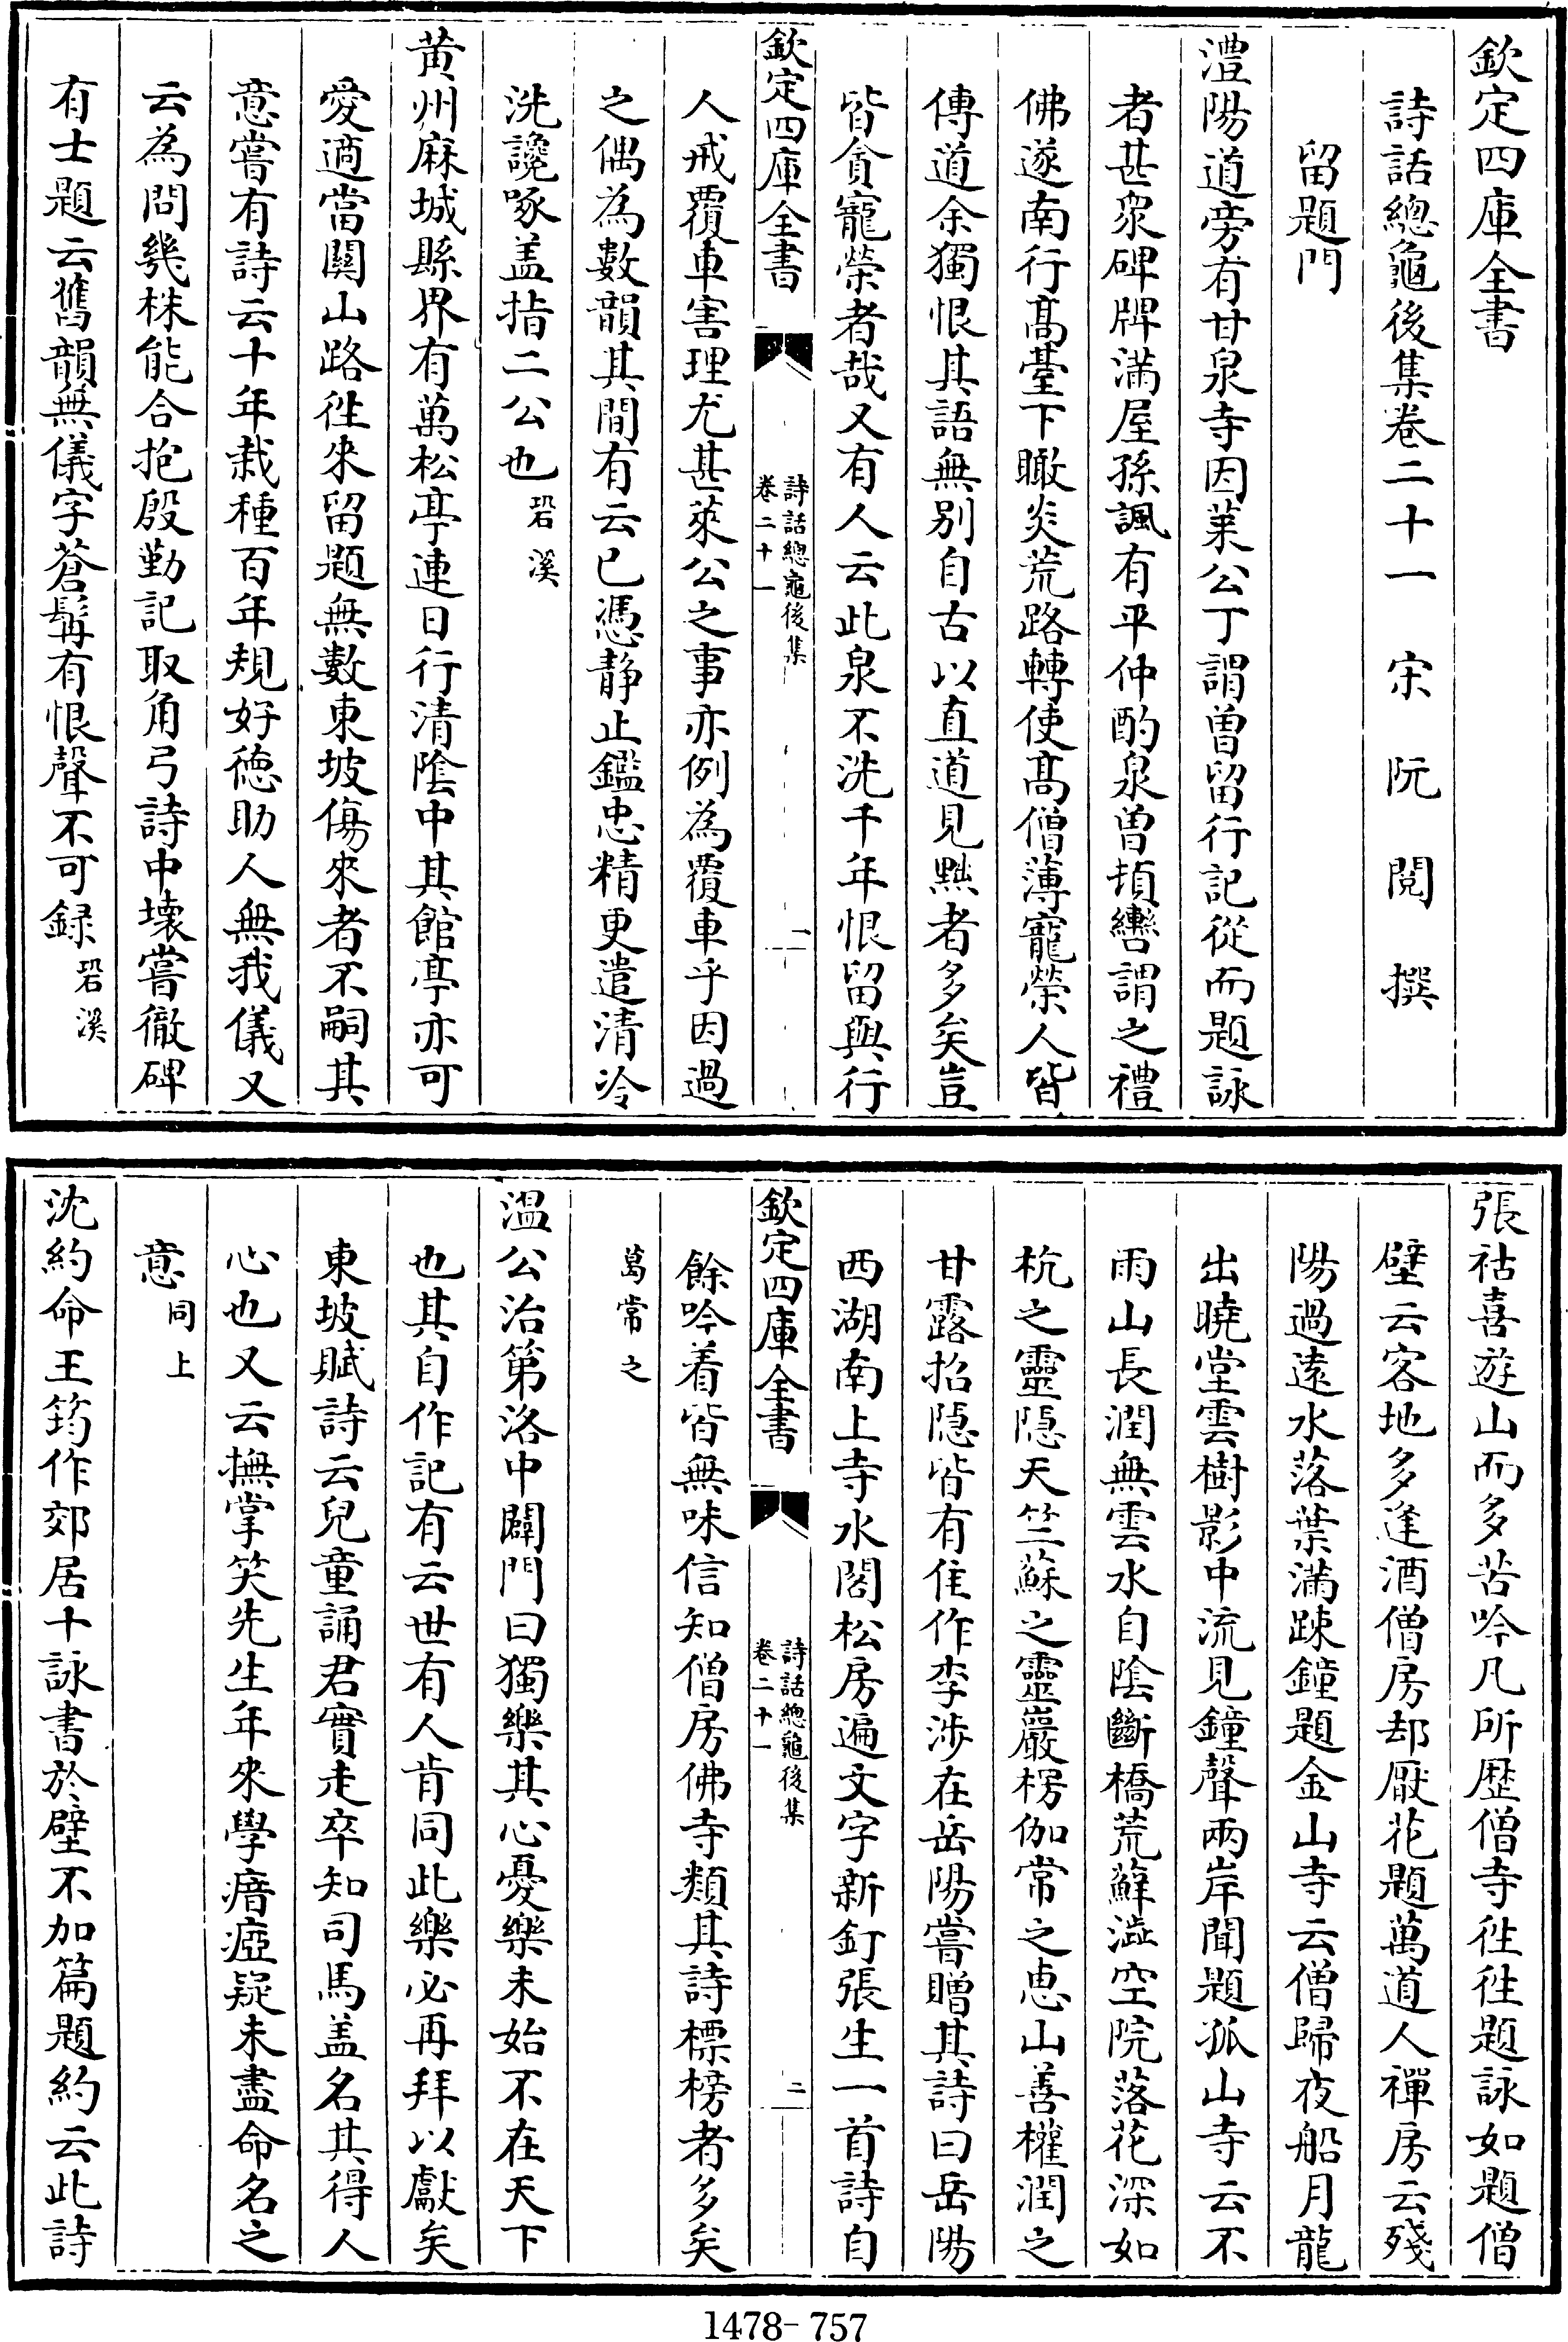 欽定四庫全書
詩話總龜後集卷二十一　宋　阮　閱　撰
留題門
澧陽道旁有甘泉寺因萊公丁謂曽留行記從而題詠
者甚衆碑牌滿屋孫諷有平仲酌泉曽頓轡謂之禮
佛遂南行髙臺下瞰炎荒路轉使髙僧薄寵榮人皆
傳道余獨恨其語無别自古以直道見黜者多矣豈
皆貪寵榮者哉又有人云此泉不洗千年恨留與行
欽定四庫全書
詩話總龜後集
卷二十一
一
人戒覆車害理尤甚萊公之事亦例為覆車乎因過
之偶為數韻其間有云已憑静止鑑忠精更遣清冷
洗讒啄盖指二公也
䂬溪
黄州麻城縣界有萬松亭連日行清陰中其館亭亦可
愛適當關山路徃來留題無數東坡傷來者不嗣其
意嘗有詩云十年栽種百年規好徳助人無我儀又
云為問幾株能合抱殷勤記取角弓詩中壊嘗徹碑
有士題云舊韻無儀字蒼髯有恨聲不可録
䂬溪
張祜喜遊山而多苦吟凡所歴僧寺徃徃題詠如題僧
壁云客地多逢酒僧房却厭花題萬道人禪房云殘
陽過逺水落葉滿踈鐘題金山寺云僧歸夜船月龍
出曉堂雲樹影中流見鐘聲兩岸聞題孤山寺云不
雨山長潤無雲水自陰斷橋荒蘚澁空院落花深如
杭之靈隠天竺蘇之靈巖楞伽常之恵山善權潤之
甘露招隠皆有佳作李渉在岳陽嘗贈其詩曰岳陽
西湖南上寺水閣松房遍文字新釘張生一首詩自
欽定四庫全書
詩話總龜後集
卷二十一
二
餘吟着皆無味信知僧房佛寺類其詩標榜者多矣
葛常之
温公治第洛中闢門曰獨樂其心憂樂未始不在天下
也其自作記有云世有人肯同此樂必再拜以獻矣
東坡賦詩云兒童誦君實走卒知司馬盖名其得人
心也又云撫掌笑先生年來學瘖瘂疑未盡命名之
意
同上
沈約命王筠作郊居十詠書於壁不加篇題約云此詩
1478-757